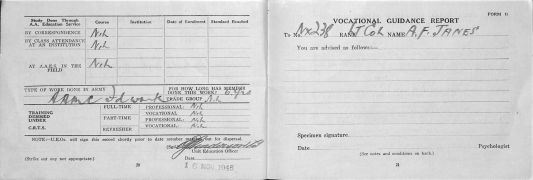 Study Done Through
A.A. Education Service
Course
Institution
Date of Enrolment
Standard Reached
BY CORRESPONDENCE
Nil
BY CLASS ATTENDANCE
AT AN INSTITUTION
Nil
AT A.A.E.S. IN THE
FIELD
Nil
TYPE OF WORK DONE IN ARMY
AAMC
FOR HOW LONG HAS MEMBER
DONE THIS WORK? 6 yrs
TRADE GROUP Nil
TRAINING
DEEMED
UNDER
C.R.T.S.
FULL-TIME
PROFESSIONAL: Nil
VOCATIONAL Nil
PART-TIME
PROFESSIONAL: Nil
VOCATIONAL: Nil
REFRESHER
NOTE.—U.E.Os. will sign this record shortly prior to date member marches out for dispersal.
Unit Education Officer
(Strike out any not appropriate)
Date 16 NOV 1945
20
FORM 11
VOCATIONAL GUIDANCE REPORT
To No. NX238 RANK Lt Col NAME A.F. JANES
You are advised as follows:—
Specimen signature.
Date
Psychologist
(See notes and conditions on back.)
21